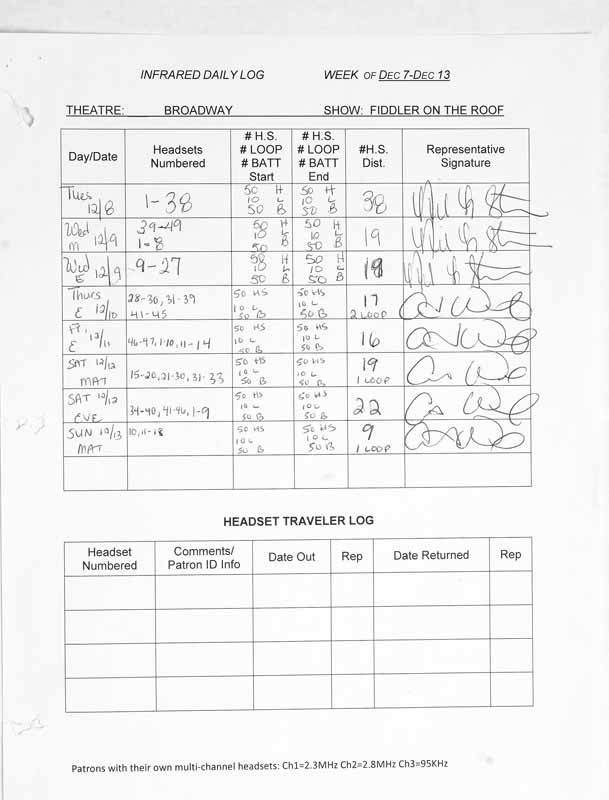 INFRARED DAILY LOG WEEK OF DEC 7-DEC 13
THEATRE: BROADWAY SHOW: FIDDLER ON THE ROOF
Day/Date
Headsets
Numbered
# H.S.
# LOOP
# BATT
Start
# H.S.
# LOOP
# BATT
End
#H.S.
Dist.
Representative
Signature
Tues
12/8
1-38
50 H
10 L
50 B
50 H
10 L
50 B
38
Wed
M 12/9
39-49
1-8
50 H
10 L
50 B
50 H
10 L
50 B
19
Wed
E 12/9
9-27
50 H
10 L
50 B
50 H
10 L
50 B
18
Thurs
E 12/10
28-30, 31-39
41-45
50 HS
10 L
50 B
50 HS
10 L
50 B
17
2 LOOP
Fri,
E 12/11
46-47, 1-10, 11-14
50 HS
10 L
50 B
50 HS
10 L
50 B
16
SAT 12/12
MAT
15-20, 21-30, 31-33
50 HS
10 L
50 B
50 HS
10 L
50 B
19
1 LOOP
SAT 12/12
EVE
34-40, 41-46, 1-9
50 HS
10 L
50 B
50 HS
10 L
50 B
22
SUN 12/13
MAT
10, 11-18
50 HS
10 L
50 B
50 HS
10 L
50 B
9
1 LOOP
HEADSET TRAVELER LOG
Headset
Numbered
Comments/
Patron ID Info
Date Out
Rep
Date Returned
Rep
Patrons with their own multi-channel headsets: Ch1=2.3MHz Ch2=2.8MHz Ch3=95KHz